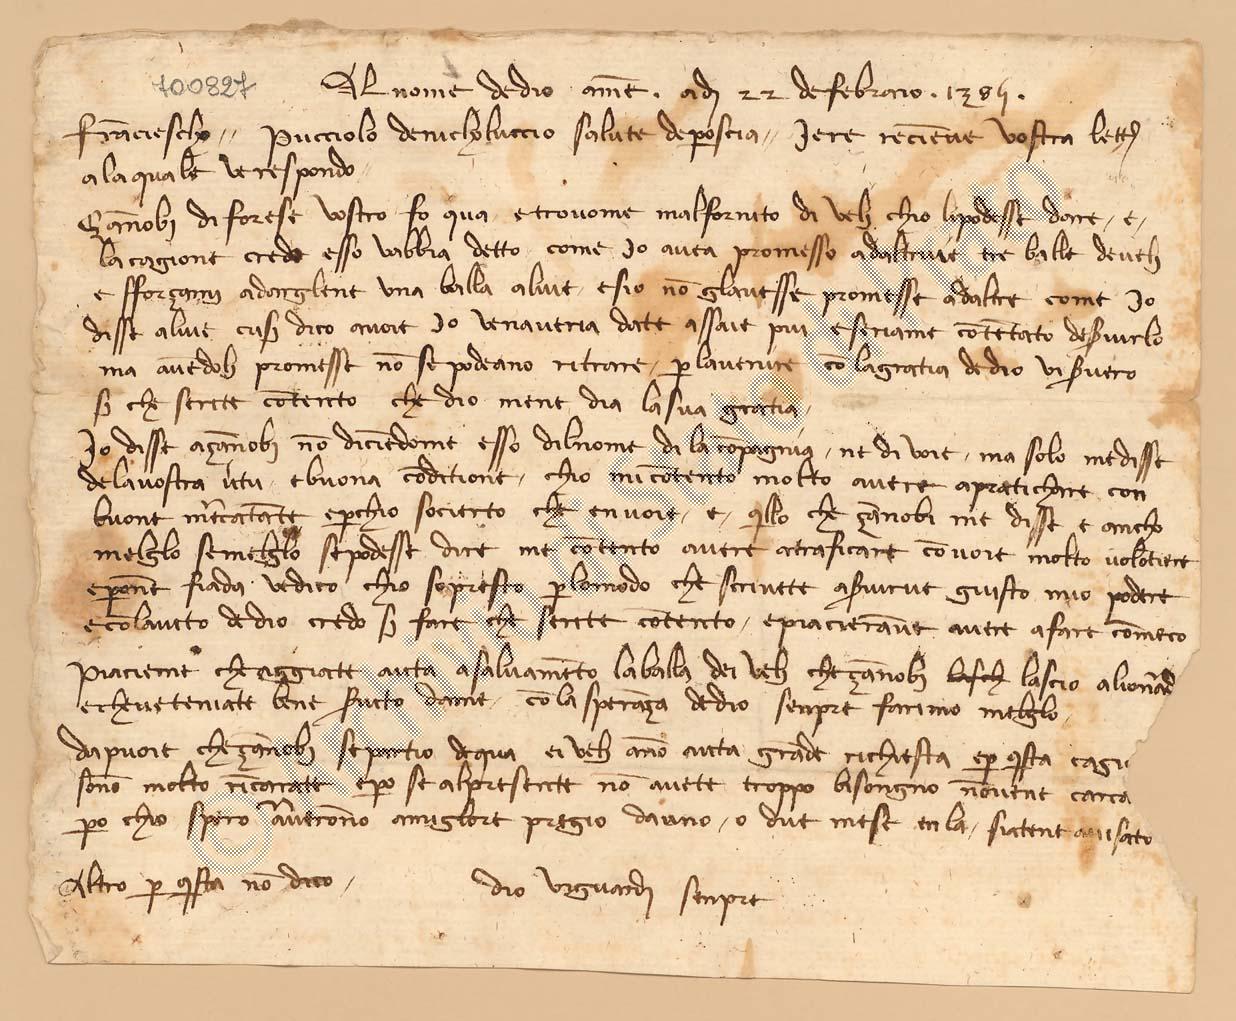 700827
Al nome de dio amē. adj 22 de febraio. 138
francieschο// Pucciolo de nicholuccio salute de poscia// Jere recieve vostra lettᵃ
a la quale ve respondo
Zanobi di forese vostro fo qua, e trovome mal fornito di veli chio li podesse dare, e,
la cagione crede esso vabbia detto come Jo avea promesso ad altruie tre balle de veli
e sforzami a darglene una balla a luie, e sio nō glavesse promesse ad altre come Jo
disse a luie cusi dico a voie Jo ve n averia date assaie piu e seriame cōtētato de ſuirlo
ma avēdoli promesse nō se podeano ritrare, p lavenire cō la gratia de dio vi ſuero
si che serete cōtento che dio mene dia la sua gratia,
Jo disse a zanobi nō diciēdome esso dil nome di la cōpagnia, ne di voie, ma solo me disse
de la vostra vtu, e buona cōditione, chio mi cōtento molto avere a pratichare con
buone mͬcatante e pchio so cierto che en voie, e, qllo che zanobi me disse e ancho
melglo se melglo se podesse dire me cōtento avere a traficare cō voie molto volōtiere
e p onē fiada ve dico chio so presto p lo modo che scrivete a ſuirve giusto mio podere
e cō l aiuto de dio credo si fare che serete cōtento, e piacieravve avere a fare cō meco
Piacieme che aggiate auta a salvamēto la balla dei veli che zanobi lascio a lionardo
e che ve teniate bene ſuito da me, cō la sperāza de dio senpre farimo melglo,
da puoie che zanobi se partio de qua ei veli anō auta grāde richiesta e p qſta cagi
sōno molto ricarate e po se al presente nō avete troppo bisongno nō vene carca
po chio spero averōno a miglore pregio da uno, o due mese en la, siatene avisato
Altro p qſta nō dico, dio vi guardi senpre